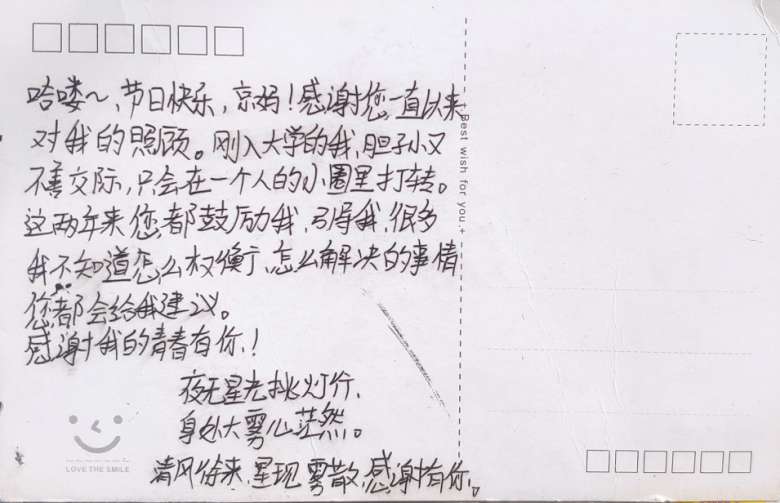 哈喽~、节日快乐，京妈！感谢您一直以来
对我的照顾。刚入大学的我，胆子小又
不善交际，只会在一个人的小圈里打转。
这两年来您都鼓励我、引导我，很多
我不知道怎么权衡、怎么解决的事情
您都会给我建议。
感谢我的青春有你！
夜无星光挑灯行，
身处大雾心茫然。
清风徐来，星现雾散，感谢有你。
LOVE THE SMILE
+ Best wish for you +